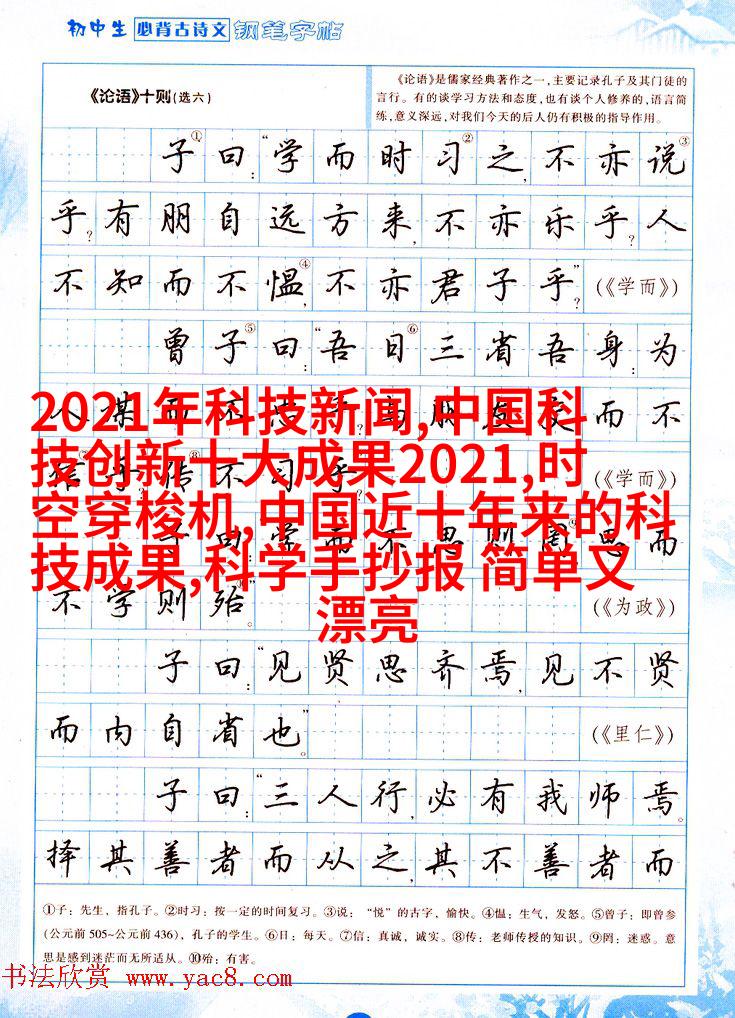 初中生 必背古诗文 钢笔字帖
《论语》十则(选六)
《论语》是儒家经典著作之一,主要记录孔子及其门徒的
言行。有的谈学习方法和态度,也有谈个人修养的,语言简
练,意义深远,对我们今天的后人仍有积极的指导作用。
子①曰:“学而时习②之,不亦说③
乎?有朋自远方来,不亦乐乎?人
不知而不愠④,不亦君子乎”? (《学而》)
曾子⑤曰:“吾日⑥三省吾身:为
人谋而不忠乎?与朋友交而不
2021年科技新闻,中国科
技创新十大成果2021,时
空穿梭机,中国近十年来的科
技成果,科学手抄报 简单又
漂亮
信乎?传⑧不习乎? (《学而》)
子曰:学而不思则罔思而
不学则殆” (《为政》)
子曰:“见贤思齐焉,见不贤
而内自省也。” (《里仁》)
子曰:“三人行,必有我师焉。
择其善者而从之,其不善者而
①子:先生,指孔子。②时习:按一定的时间复习。③说:“悦”的古字,愉快。④愠:生气,发怒。⑤曾子:即曾参
(公元前505~公元前436),孔子的学生。⑥日:每天。⑦信:真诚,诚实。⑧传:老师传授的知识。⑨罔:迷惑。意
思是感到迷茫而无所适从。⑩殆:有害。
书法欣赏 www.yac8.com